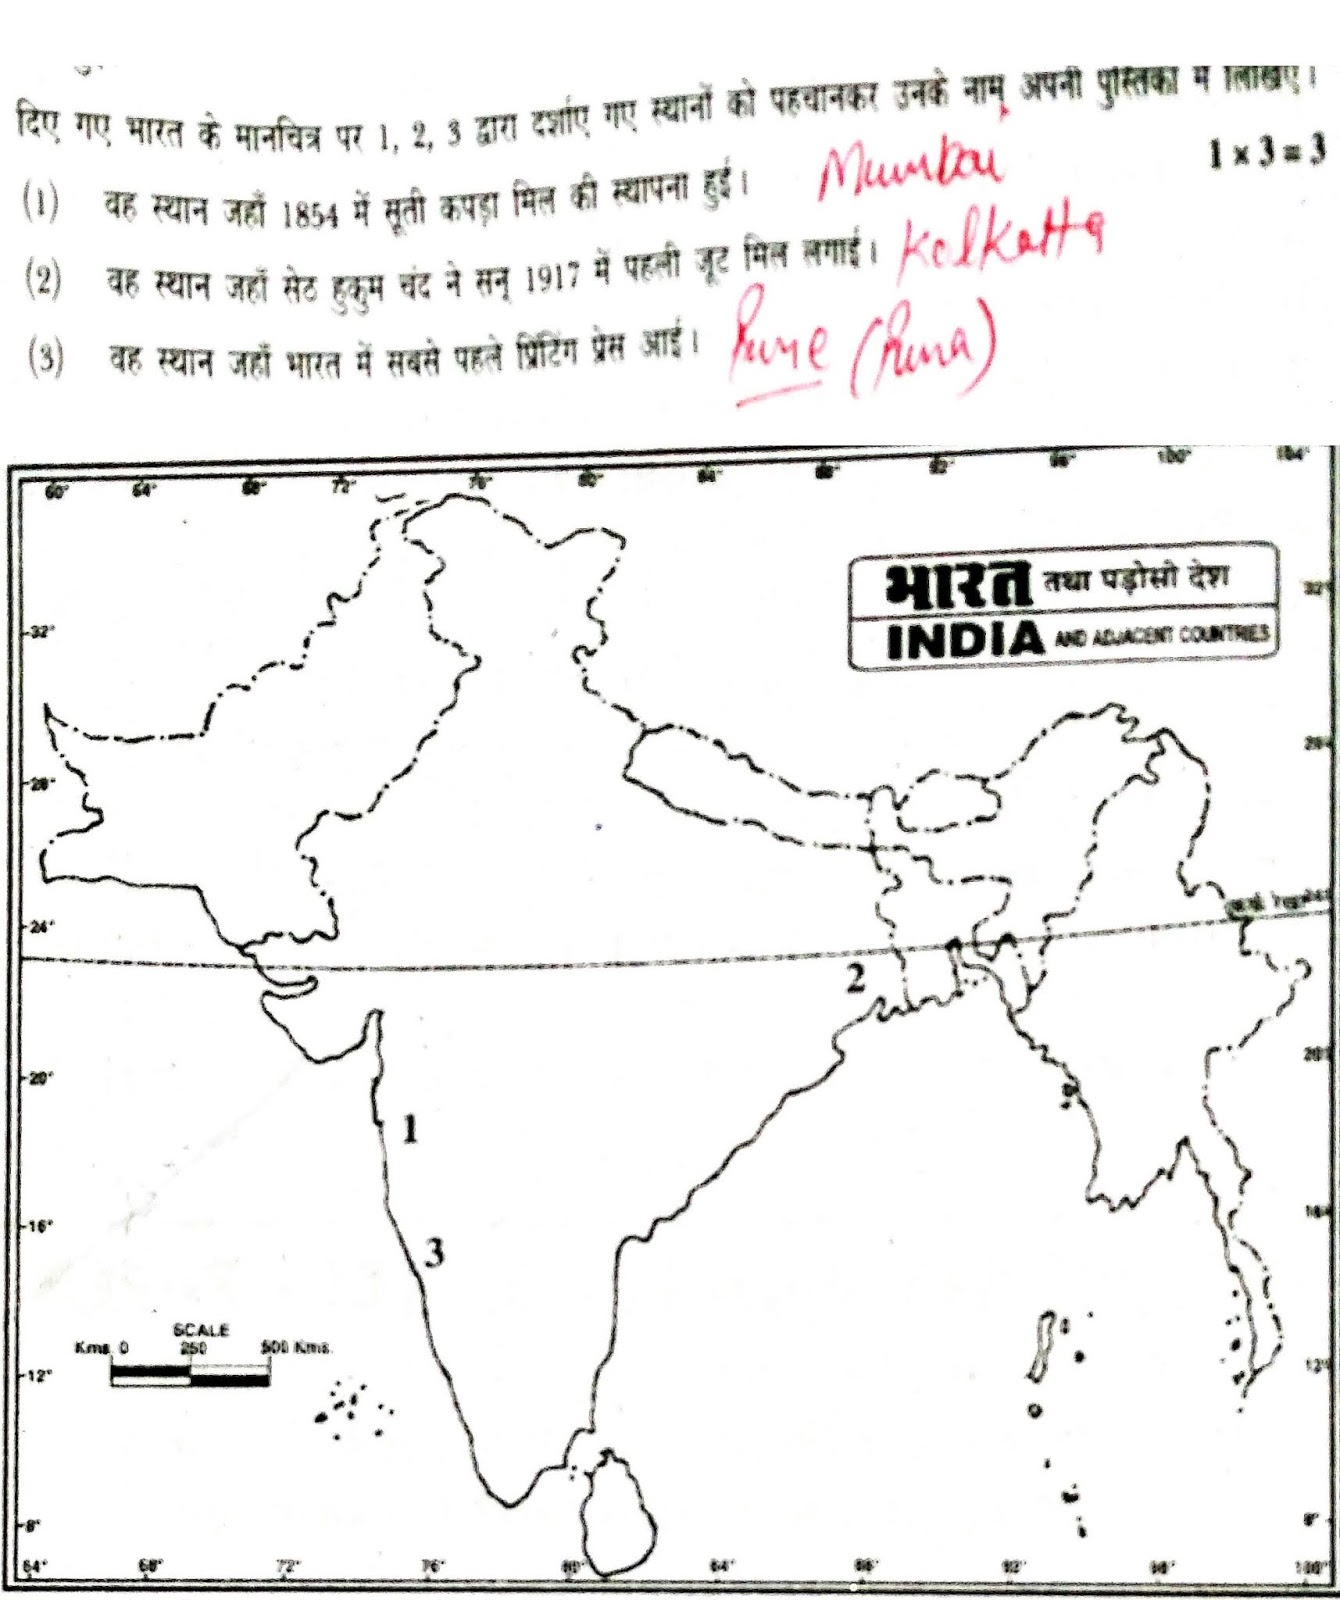 दिए गए भारत के मानचित्र पर 1, 2, 3 द्वारा दर्शाए गए स्थानों को पहचानकर उनके नाम अपनी पुस्तिका में लिखिए।
1 × 3 = 3
(1) वह स्थान जहाँ 1854 में सूती कपड़ा मिल की स्थापना हुई। Mumbai
(2) वह स्थान जहाँ सेठ हुकुम चंद ने सन् 1917 में पहली जूट मिल लगाई। Kolkatta
(3) वह स्थान जहाँ भारत में सबसे पहले प्रिंटिंग प्रेस आई। Pune (Puna)
60° 64° 68° 72° 76° 80° 84° 88° 92° 96° 100° 104°
भारत तथा पड़ोसी देश
INDIA AND ADJACENT COUNTRIES
32° 32°
28° 28°
24°
2
20° 20°
1
16° 16°
3
SCALE
Kms. 0 250 500 Kms.
12° 12°
8° 8°
64° 68° 72° 76° 80° 84° 88° 92° 96° 100°